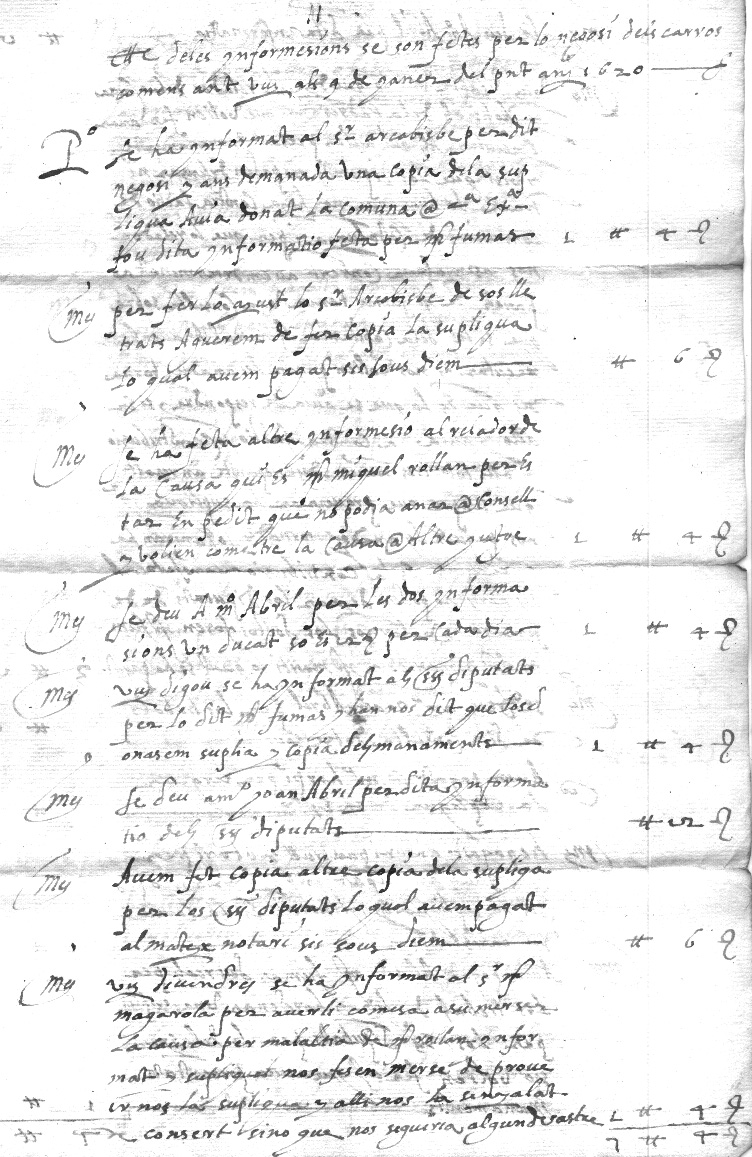 de les ynformesions se son fetes per lo negosi dels carros
comensant vuy als 9 de gener del pnt any 1620
P.º se ha ynformat al s.r arcobisbe per dit
negosi y ans demanada una copia de la sup
liqua Avia donat La comuna @
fou dita ynformatio feta per m.º fumas 1 # 4 ß
Mes per fer lo ajust lo s.r Arcobisbe de sos lle
trats Aquerem de fer Copia La supliqua
lo qual avem pagat sis sous diem # 6 ß
Mes se ha feta altre ynformesio al relador de
La Causa qui Es m.º miquel rollan per Es
tar En pedit que no podia anar @ Consell
y volien cometre la Causa @ Altre 1 # 4 ß
Mes se deu A m.º Abril per Les dos ynforma
sions Un ducat so Es 12 ß per Cada dia 1 # 4 ß
Mes vuy digou se ha ynformat als ss diputats
per lo dit m.º fumas y han nos dit que los d
onasem suplica y copia dels manaments 1 # 4 ß
Mes se deu a m.º joan Abril per dita ynforma
tio dels ss diputats # 12 ß
Mes Avem fet copia altre copia de la supliqa
per los ss diputats lo qual avem pagat
al matex notari sis sous diem # 6 ß
Mes vuy divendres se ha ynformat al s.r m.º
magarola per averli comesa a su merse
La causa per malaltia de m.º rollan ynfor
mat y supliquat nos fesen merse de prove
ir nos las supliqua y alli nos ha senyalat
consert sino que nos seguiria algun desastre 1 # 4 ß
7 # 4 ß